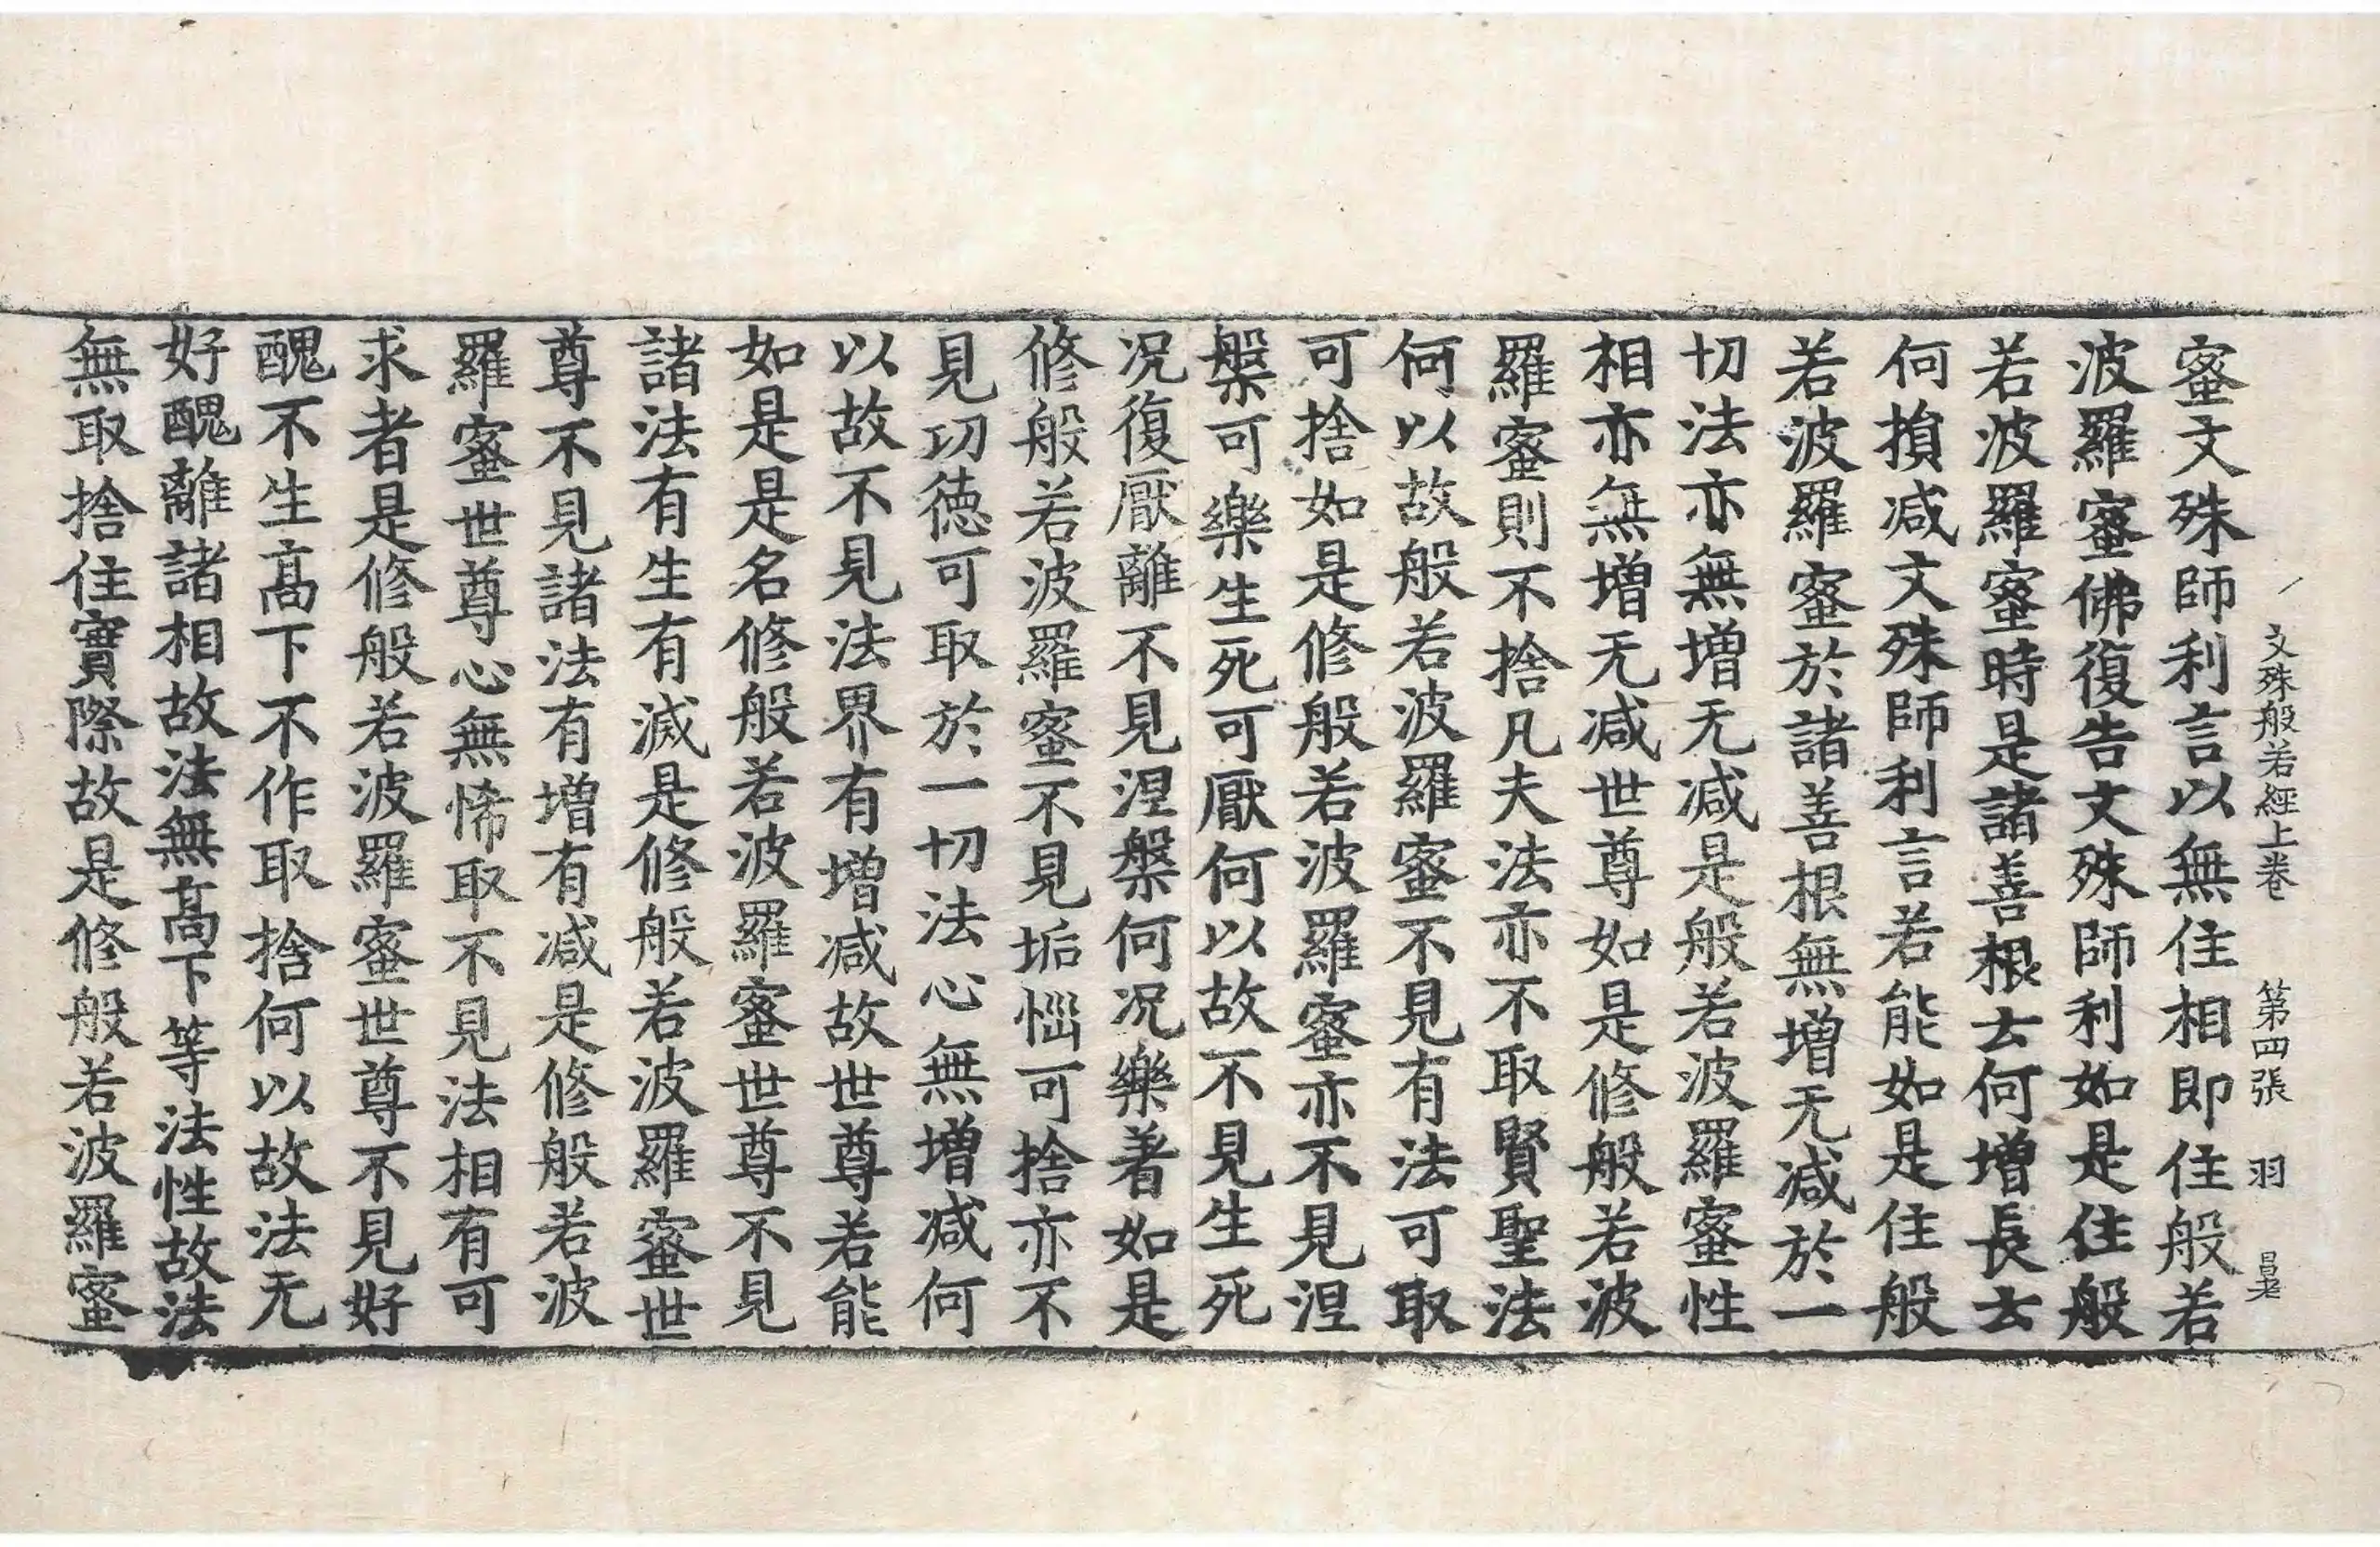 文殊般若經上卷 第四張 羽 昌老
蜜文殊師利言以無住相即住般若
波羅蜜佛復告文殊師利如是住般
若波羅蜜時是諸善根云何增長云
何損减文殊師利言若能如是住般
若波羅蜜於諸善根無增无减於一
切法亦無增无减是般若波羅蜜性
相亦無增无减世尊如是修般若波
羅蜜則不捨凡夫法亦不取賢聖法
何以故般若波羅蜜不見有法可取
可捨如是修般若波羅蜜亦不見涅
槃可樂生死可厭何以故不見生死
况復厭離不見涅槃何况樂著如是
修般若波羅蜜不見垢惱可捨亦不
見功德可取於一切法心無增减何
以故不見法界有增减故世尊若能
如是是名修般若波羅蜜世尊不見
諸法有生有滅是修般若波羅蜜世
尊不見諸法有增有减是修般若波
羅蜜世尊心無悕取不見法相有可
求者是修般若波羅蜜世尊不見好
醜不生高下不作取捨何以故法无
好醜離諸相故法無高下等法性故法
無取捨住實際故是修般若波羅蜜